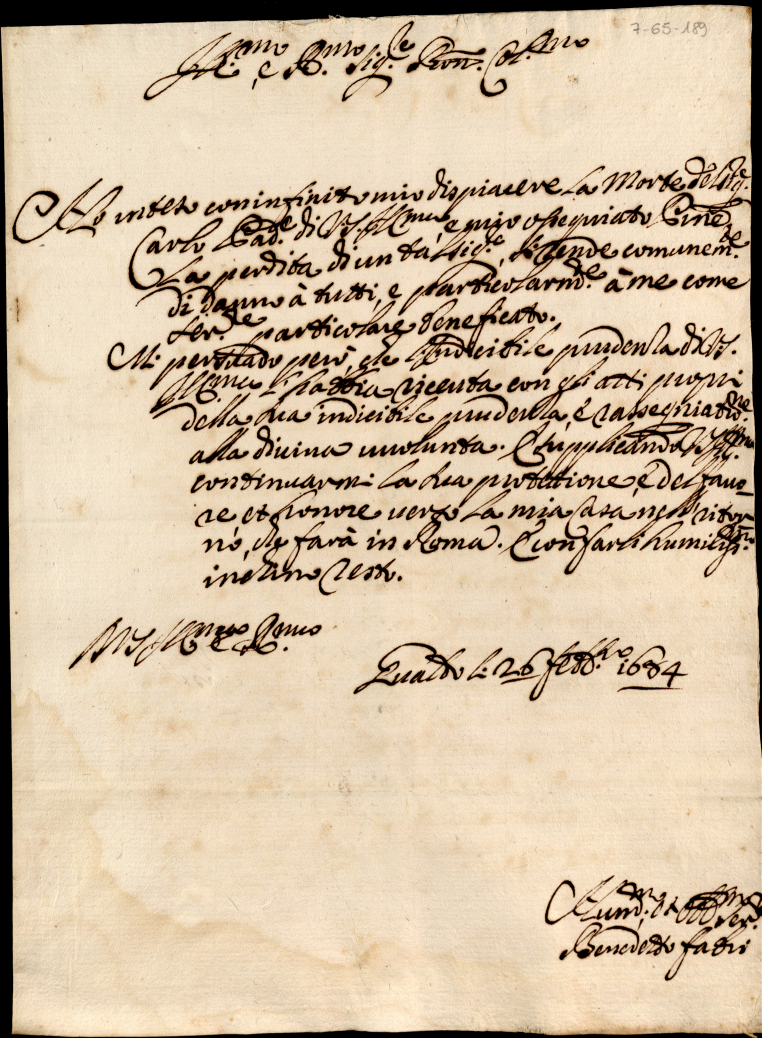 7-65-189
Ill.mo e R.mo Sig.re Pron. Col.mo
Ho inteso con infinito mio dispiacere la Morte del Sig.
Carlo Pad.e di V.S. Ill.ma, e mio ossequiato
La perdita di un tal Sig.e, si rende comunem.te
di danno à tutti, e particolarm.te à me come
Ser.re particolare beneficato.
Mi persuado però, che l'indicibile prudenza di V.S.
Ill.ma l'habbia riceuta con gli atti proprii
della sua indicibile prudenza, e rassegniatio.ne
alla divina uuolunta. E supplicando V.S. Ill.ma
continuarmi la sua protetione, e del fauo-
re et honore uerso la mia Casa nell'ritor-
no, che farà in Roma. E con farli humiliss.mo
inchino resto.
Di V.S. Ill.ma e R.ma
Gualdo li 26 febb.ro 1684
Hum.
Benedetto fabri